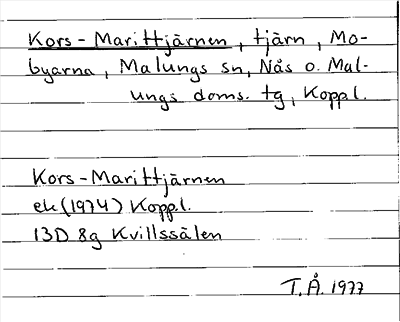 Kors-Marittjärnen, tjärn, Mo-
byarna, Malungs sn, Nås o. Mal-
ungs doms. tg, Koppl.
Kors-Marittjärnen
ek (1974) Koppl.
13D 8g Kvillssälen
T.Å. 1977